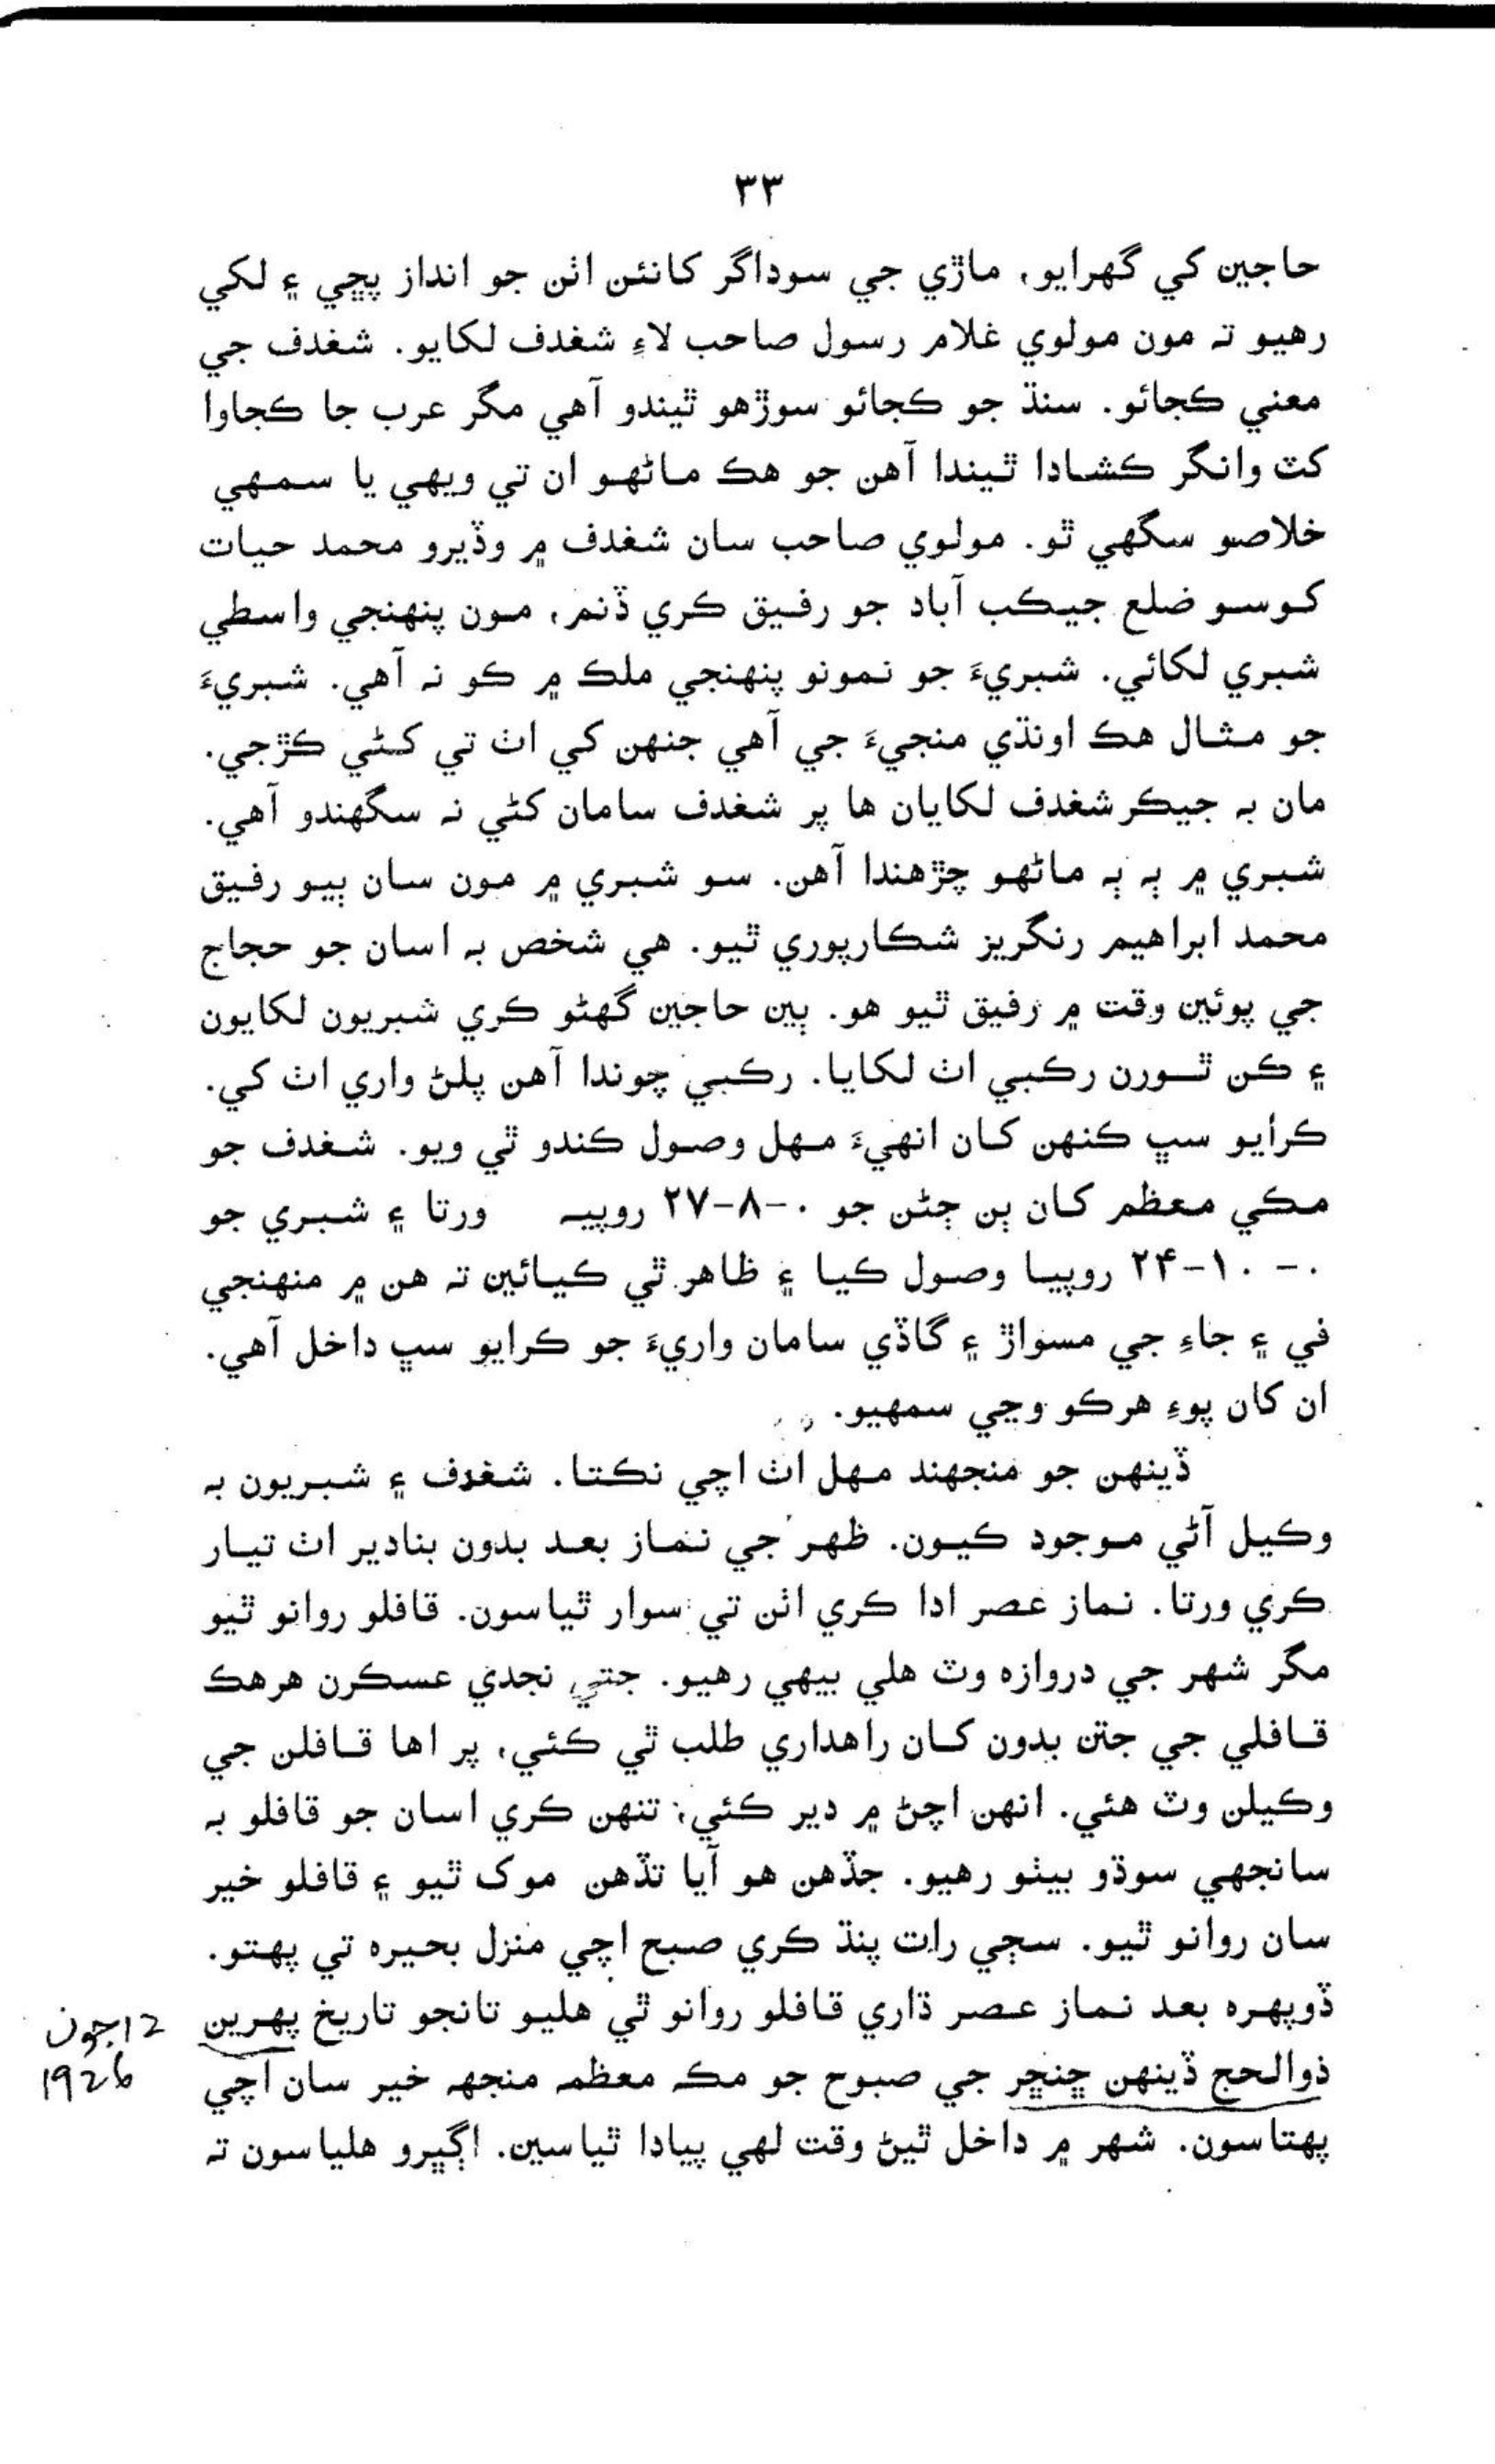 ۳۳
حاجين کي گهرايو، ماڙي جي سوداگر کانئن اٺن جو انداز پڇي ۽ لکي
رهيو تہ مون مولوي غلام رسول صاحب لاءِ شغدف لکايو. شغدف جي
معني ڪجائو. سنڌ جو ڪجائو سوڙهو ٿيندو آهي مگر عرب جا ڪجاوا
کٽ وانگر ڪشادا ٿيندا آهن جو هڪ ماڻهو ان تي ويهي يا سمهي
خلاصو سگهي ٿو. مولوي صاحب سان شغدف ۾ وڏيرو محمد حيات
کوسو ضلع جيڪب آباد جو رفيق ڪري ڏنم، مون پنهنجي واسطي
شبري لکائي. شبريءَ جو نمونو پنهنجي ملڪ ۾ ڪو نہ آهي. شبريءَ
جو مثال هڪ اونڌي منجيءَ جي آهي جنهن کي اٺ تي کڻي ڪڙجي.
مان بہ جيڪر شغدف لکايان ها پر شغدف سامان کڻي نہ سگهندو آهي.
شبري ۾ ٻہ ٻہ ماڻهو چڙهندا آهن. سو شبري ۾ مون سان ٻيو رفيق
محمد ابراهيم رنگريز شڪارپوري ٿيو. هي شخص بہ اسان جو حجاج
جي پوئين وقت ۾ رفيق ٿيو هو. ٻين حاجين گهڻو ڪري شبريون لکايون
۽ ڪن ٿورن رڪبي اٺ لکايا. رڪبي چوندا آهن پلڻ واري اٺ کي.
ڪرايو سڀ ڪنهن کان انهيءَ مهل وصول ڪندو ٿي ويو. شغدف جو
مڪي معظم کان ٻن ڄڻن جو ۰-۸-۲۷ روپيہ ورتا ۽ شبري جو
۰-۱۰-۲۴ روپيا وصول ڪيا ۽ ظاهر ٿي ڪيائين تہ هن ۾ منهنجي
في ۽ جاءِ جي مسواڙ ۽ گاڏي سامان واريءَ جو ڪرايو سڀ داخل آهي.
ان کان پوءِ هرڪو وڃي سمهيو.
ڏينهن جو منجهند مهل اٺ اچي نڪتا. شغدف ۽ شبريون بہ
وڪيل آڻي موجود ڪيون. ظهر جي نماز بعد بدون بنادير اٺ تيار
ڪري ورتا. نماز عصر ادا ڪري اٺن تي سوار ٿياسون. قافلو روانو ٿيو
مگر شهر جي دروازه وٽ هلي بيهي رهيو. جتي نجدي عسڪرن هر هڪ
قافلي جي جتن بدون کان راهداري طلب ٿي ڪئي، پر اها قافلن جي
وڪيلن وٽ هئي. انهن اچڻ ۾ دير ڪئي؛ تنهن ڪري اسان جو قافلو بہ
سانجهي سوڌو بيٺو رهيو. جڏهن هو آيا تڏهن موک ٿيو ۽ قافلو خير
سان روانو ٿيو. سڄي رات پنڌ ڪري صبح اچي منزل بحيره تي پهتو.
ڏوپهره بعد نماز عصر ڌاري قافلو روانو ٿي هليو تانجو تاريخ پهرين
12 جون
1926
ذوالحج ڏينهن ڇنڇر جي صبوح جو مڪہ معظمہ منجهہ خير سان اچي
پهتاسون. شهر ۾ داخل ٿيڻ وقت لهي پيادا ٿياسين. اڳڀرو هلياسون تہ